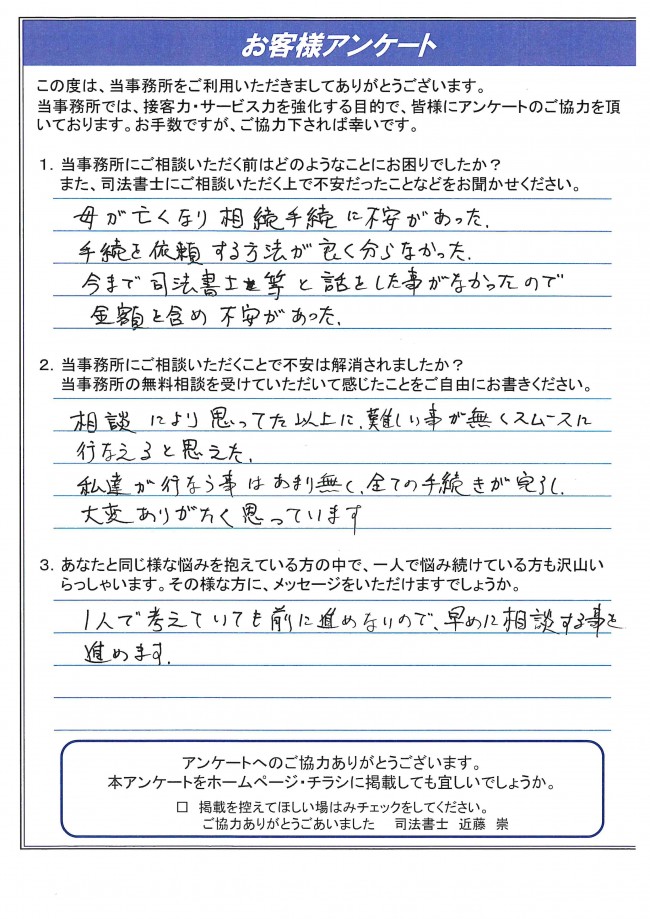 お客様アンケート
この度は、当事務所をご利用いただきましてありがとうございます。
当事務所では、接客力・サービス力を強化する目的で、皆様にアンケートのご協力を頂
いております。お手数ですが、ご協力下されば幸いです。
1. 当事務所にご相談いただく前はどのようなことにお困りでしたか？
また、司法書士にご相談いただく上で不安だったことなどをお聞かせください。
母が亡くなり相続手続に不安があった.
手続を依頼する方法が良く分らなかった.
今まで司法書士等と話をした事がなかったので
金額を含め不安があった.
2. 当事務所にご相談いただくことで不安は解消されましたか？
当事務所の無料相談を受けていただいて感じたことをご自由にお書きください。
相談により思ってた以上に、難しい事が無くスムースに
行なえると思えた.
私達が行なう事はあまり無く、全ての手続きが完了し、
大変ありがたく思っています
3. あなたと同じ様な悩みを抱えている方の中で、一人で悩み続けている方も沢山い
らっしゃいます。その様な方に、メッセージをいただけますでしょうか。
1人で考えていても前に進めないので、早めに相談する事を
進めます.
アンケートへのご協力ありがとうございます。
本アンケートをホームページ・チラシに掲載しても宜しいでしょうか。
□ 掲載を控えてほしい場はみチェックをしてください。
ご協力ありがとうごあいました 司法書士 近藤 崇